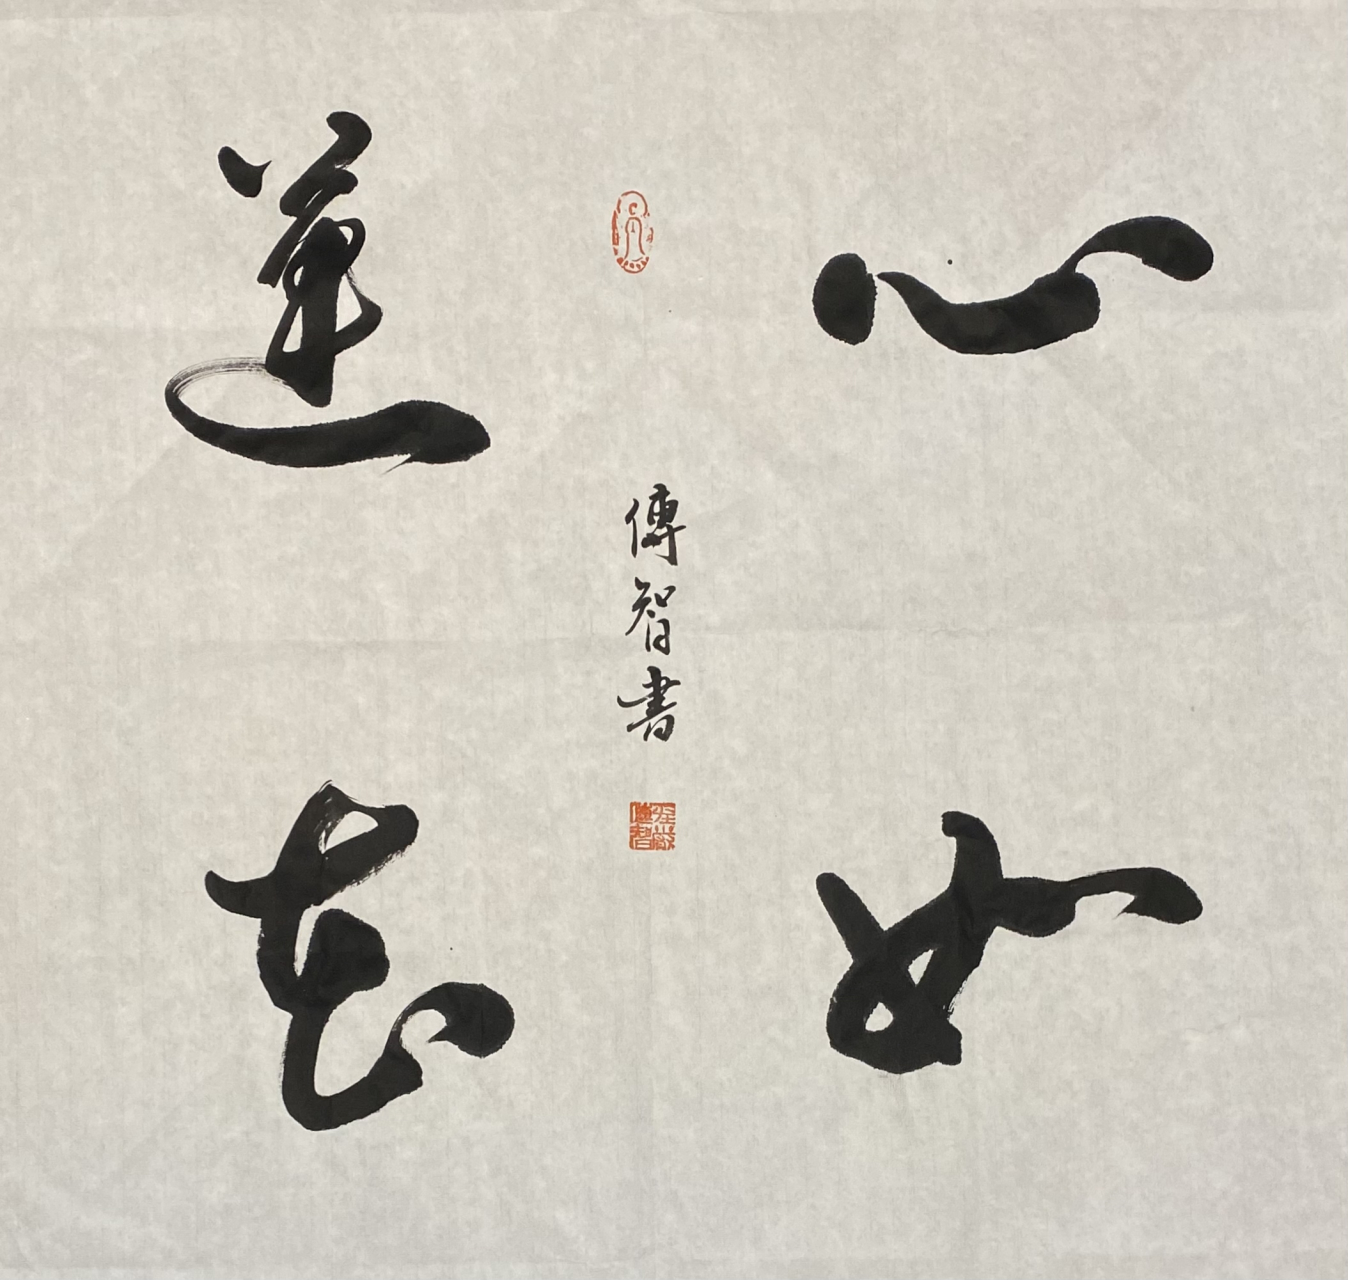 心如
蓮花
傳智書